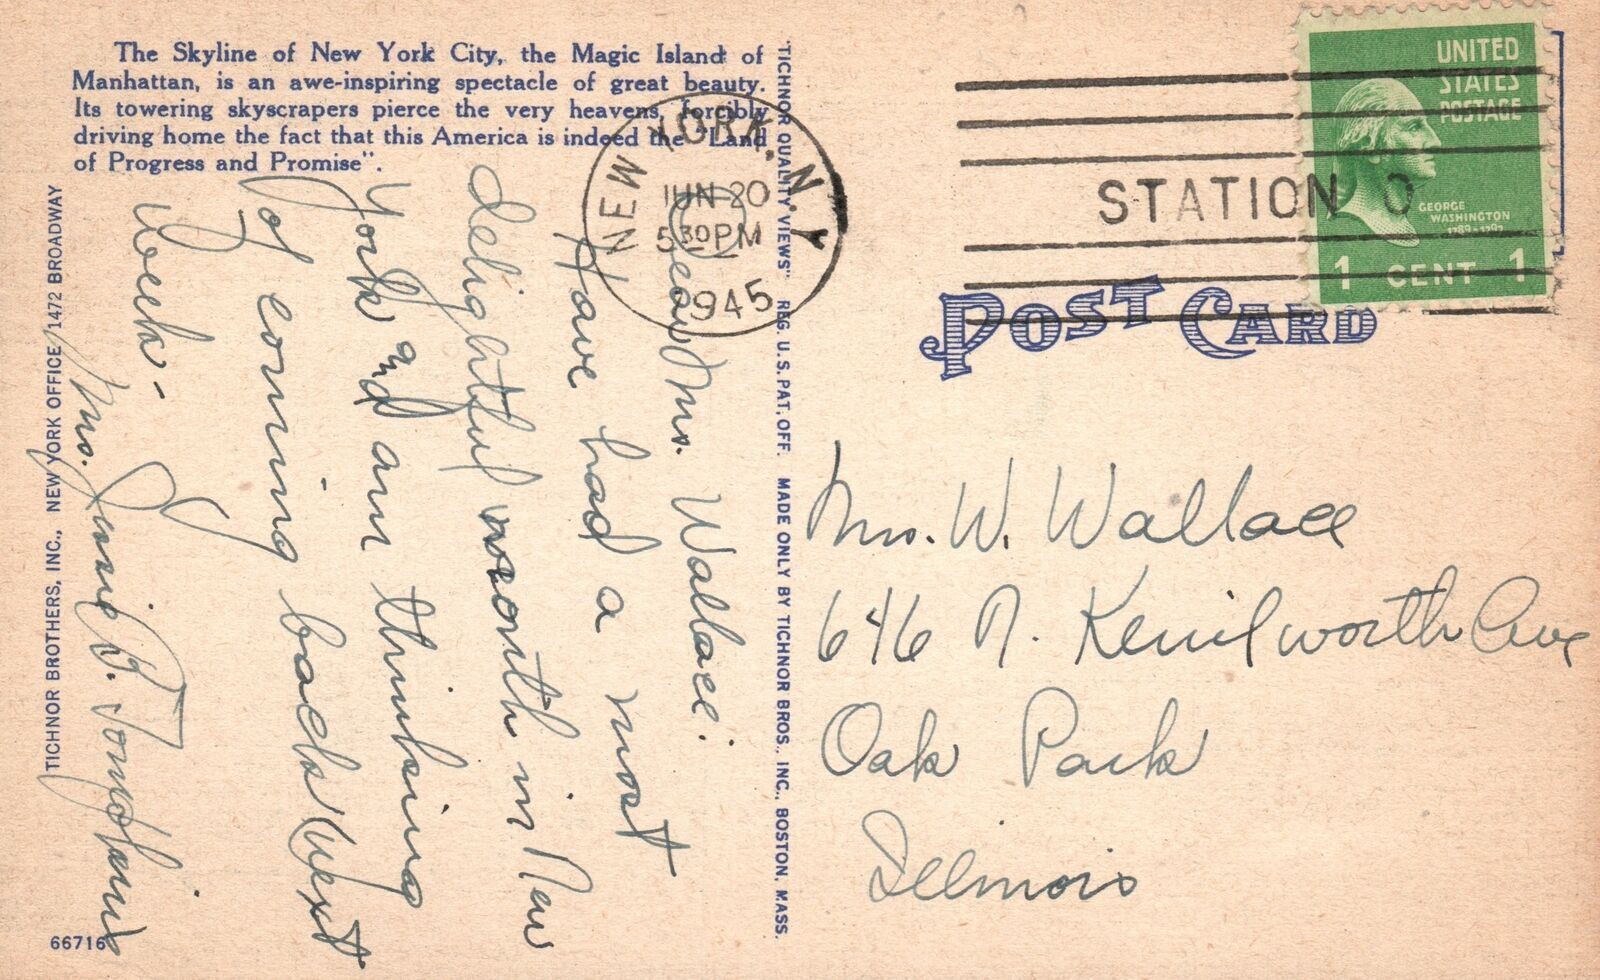 The Skyline of New York City, the Magic Island of
Manhattan, is an awe-inspiring spectacle of great beauty.
Its towering skyscrapers pierce the very heavens, forcibly
driving home the fact that this America is indeed the "Land
of Progress and Promise".
Dear Mrs. Wallace:
Have had a most
delightful month in New
York and am thinking
of coming back next
week -
Mrs. Jennie D. Tompkins
TICHNOR BROTHERS, INC., NEW YORK OFFICE 1472 BROADWAY
66716
"TICHNOR QUALITY VIEWS" REG. U.S. PAT. OFF. MADE ONLY BY TICHNOR BROS., INC., BOSTON, MASS.
NEW YORK, N.Y.
JUN 20
5 30 PM
1945
STATION O
UNITED
STATES
POSTAGE
GEORGE
WASHINGTON
1789-1797
1 CENT 1
POST CARD
Mrs. W. Wallace
646 N. Kenilworth Ave
Oak Park
Illinois